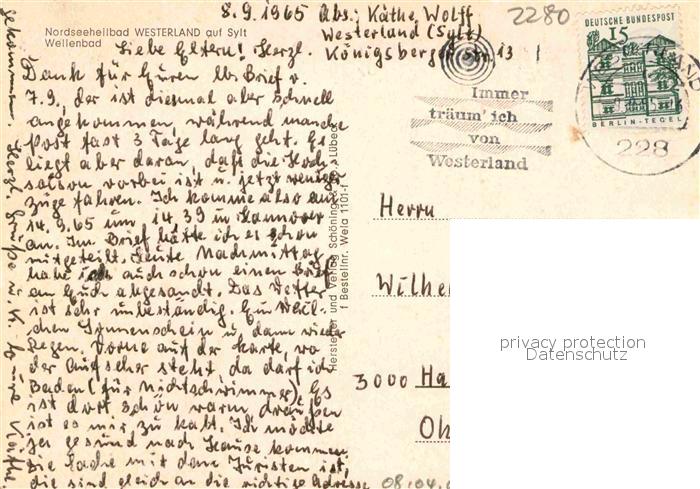 8.9.1965 Abs: Käthe Wolff
Westerland (Sylt)
Königsberger Str. 13
2280
Nordseeheilbad WESTERLAND auf Sylt
Wellenbad
Liebe Eltern! Herzl.
Dank für Euren lb. Brief v.
7.9., der ist diesmal aber schnell
angekommen, während manche
Post fast 3 Tage lang geht. Es
liegt aber daran, daß die Hoch-
saison vorbei ist u. jetzt weniger
Züge fahren. Ich komme also am
14.9.65 um 14.39 in Hannover
an. Im Brief hätte ich es schon
mitgeteilt. Heute Nachmittag
habe ich auch schon einen Brief
an Euch abgesandt. Das Wetter
ist sehr unbeständig. Ein Weil-
chen Sonnenschein u. dann wieder
Regen. Vorne auf der Karte, wo
der Aufseher steht, da darf ich
Baden (für Nichtschwimmer). Es
ist dort schön warm, draußen
ist es mir zu kalt. Ich möchte
ja gesund nach Hause kommen.
Die Sache mit dem Juristen ist,
die sind gleich an die richtige Adresse
gekommen. Herzl. Grüße u. K. Eure Käthe
Hersteller und Verlag Schöning & Co Lübeck
Bestellnr. Wela 1101-f
DEUTSCHE BUNDESPOST
15
BERLIN-TEGEL
228
Immer
träum' ich
von
Westerland
Herrn
Wilhe
3000 Ha
Oh
privacy protection
Datenschutz
08.04.